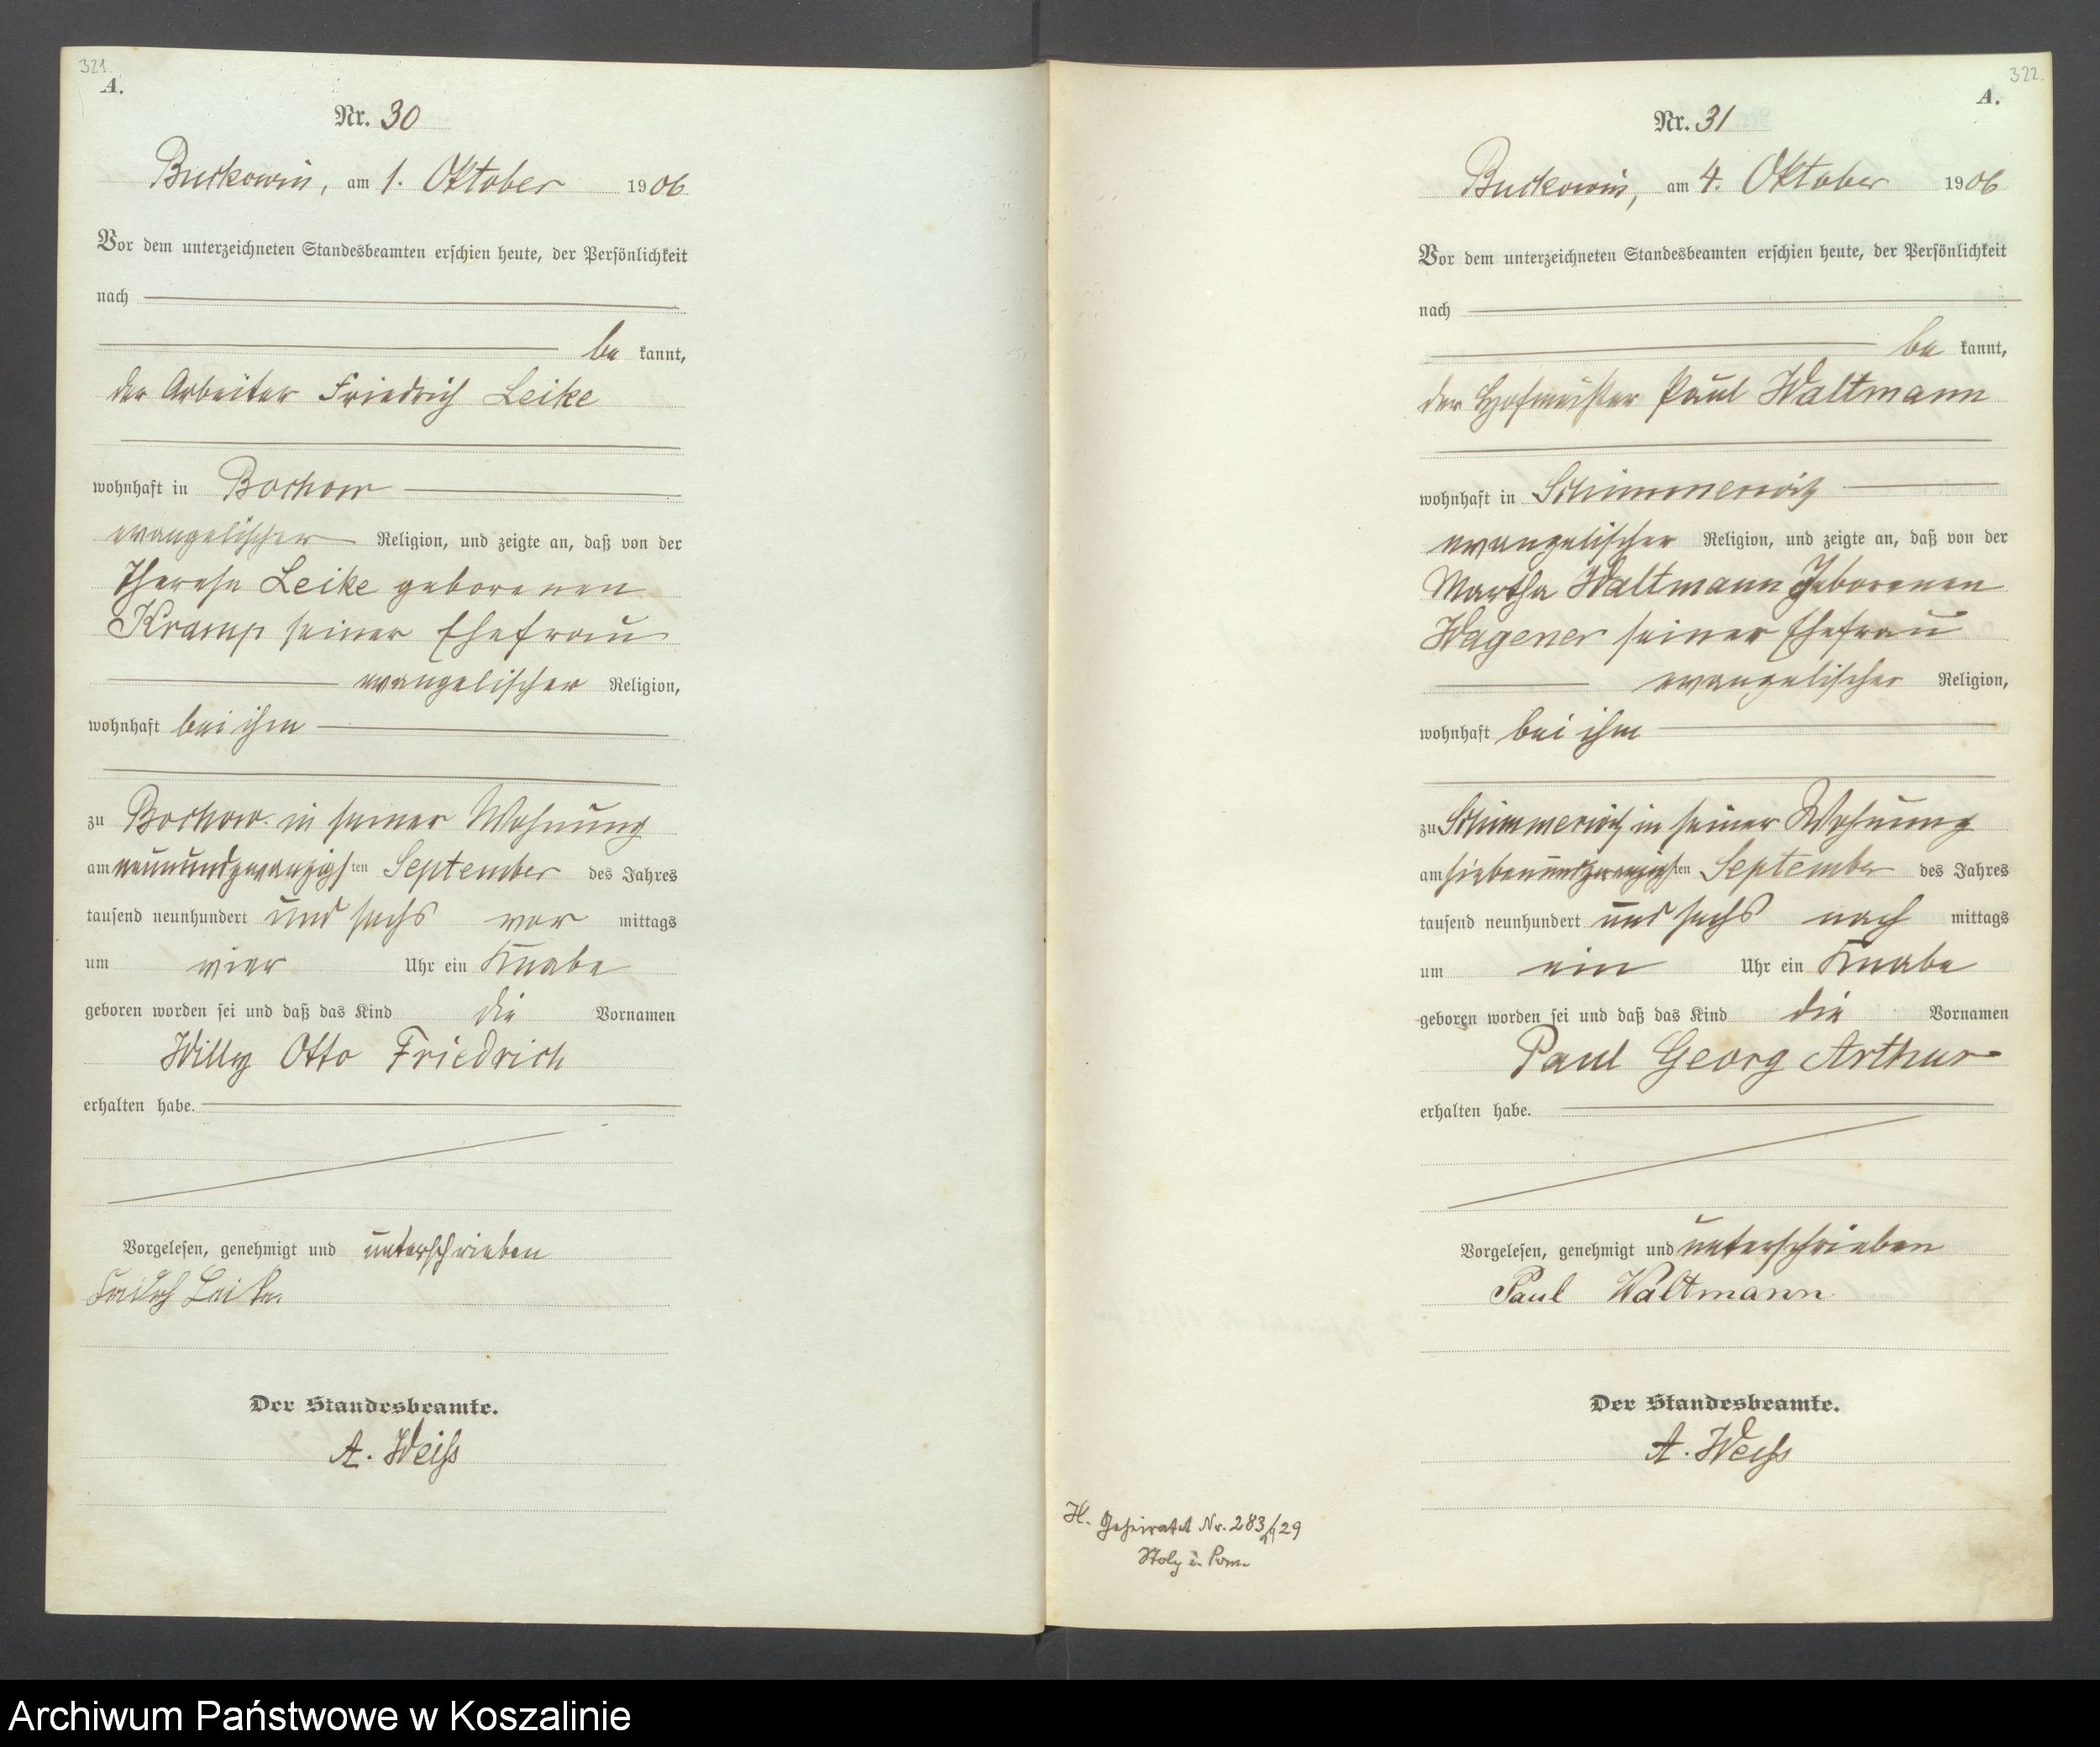 321.
A.
Nr. 30
Buckowin, am 1. Oktober 1906
Vor dem unterzeichneten Standesbeamten erschien heute, der Persönlichkeit
nach
be kannt,
der Arbeiter Friedrich Leike
wohnhaft in Bochow
evangelischer Religion, und zeigte an, daß von der
Therese Leike geborenen
Kramp seiner Ehefrau
evangelischer Religion,
wohnhaft bei ihm
zu Bochow in seiner Wohnung
am neunundzwanzigsten September des Jahres
tausend neunhundert und sechs vor mittags
um vier Uhr ein Knabe
geboren worden sei und daß das Kind die Vornamen
Willy Otto Friedrich
erhalten habe.
Vorgelesen, genehmigt und unterschrieben
Leike
Der Standesbeamte.
A. Weiß
322.
A.
Nr. 31
Buckowin, am 4. Oktober 1906
Vor dem unterzeichneten Standesbeamten erschien heute, der Persönlichkeit
nach
be kannt,
der Hofmeister Paul Waltmann
wohnhaft in Schimmerwitz
evangelischer Religion, und zeigte an, daß von der
Martha Waltmann geborenen
Wagener seiner Ehefrau
evangelischer Religion,
wohnhaft bei ihm
zu Schimmerwitz in seiner Wohnung
am siebenundzwanzigsten September des Jahres
tausend neunhundert und sechs nach mittags
um ein Uhr ein Knabe
geboren worden sei und daß das Kind die Vornamen
Paul Georg Arthur
erhalten habe.
Vorgelesen, genehmigt und unterschrieben
Paul Waltmann
Der Standesbeamte.
A. Weiß
H. Geheiratet Nr. 283/29
Stolp i. Pom.
Archiwum Państwowe w Koszalinie